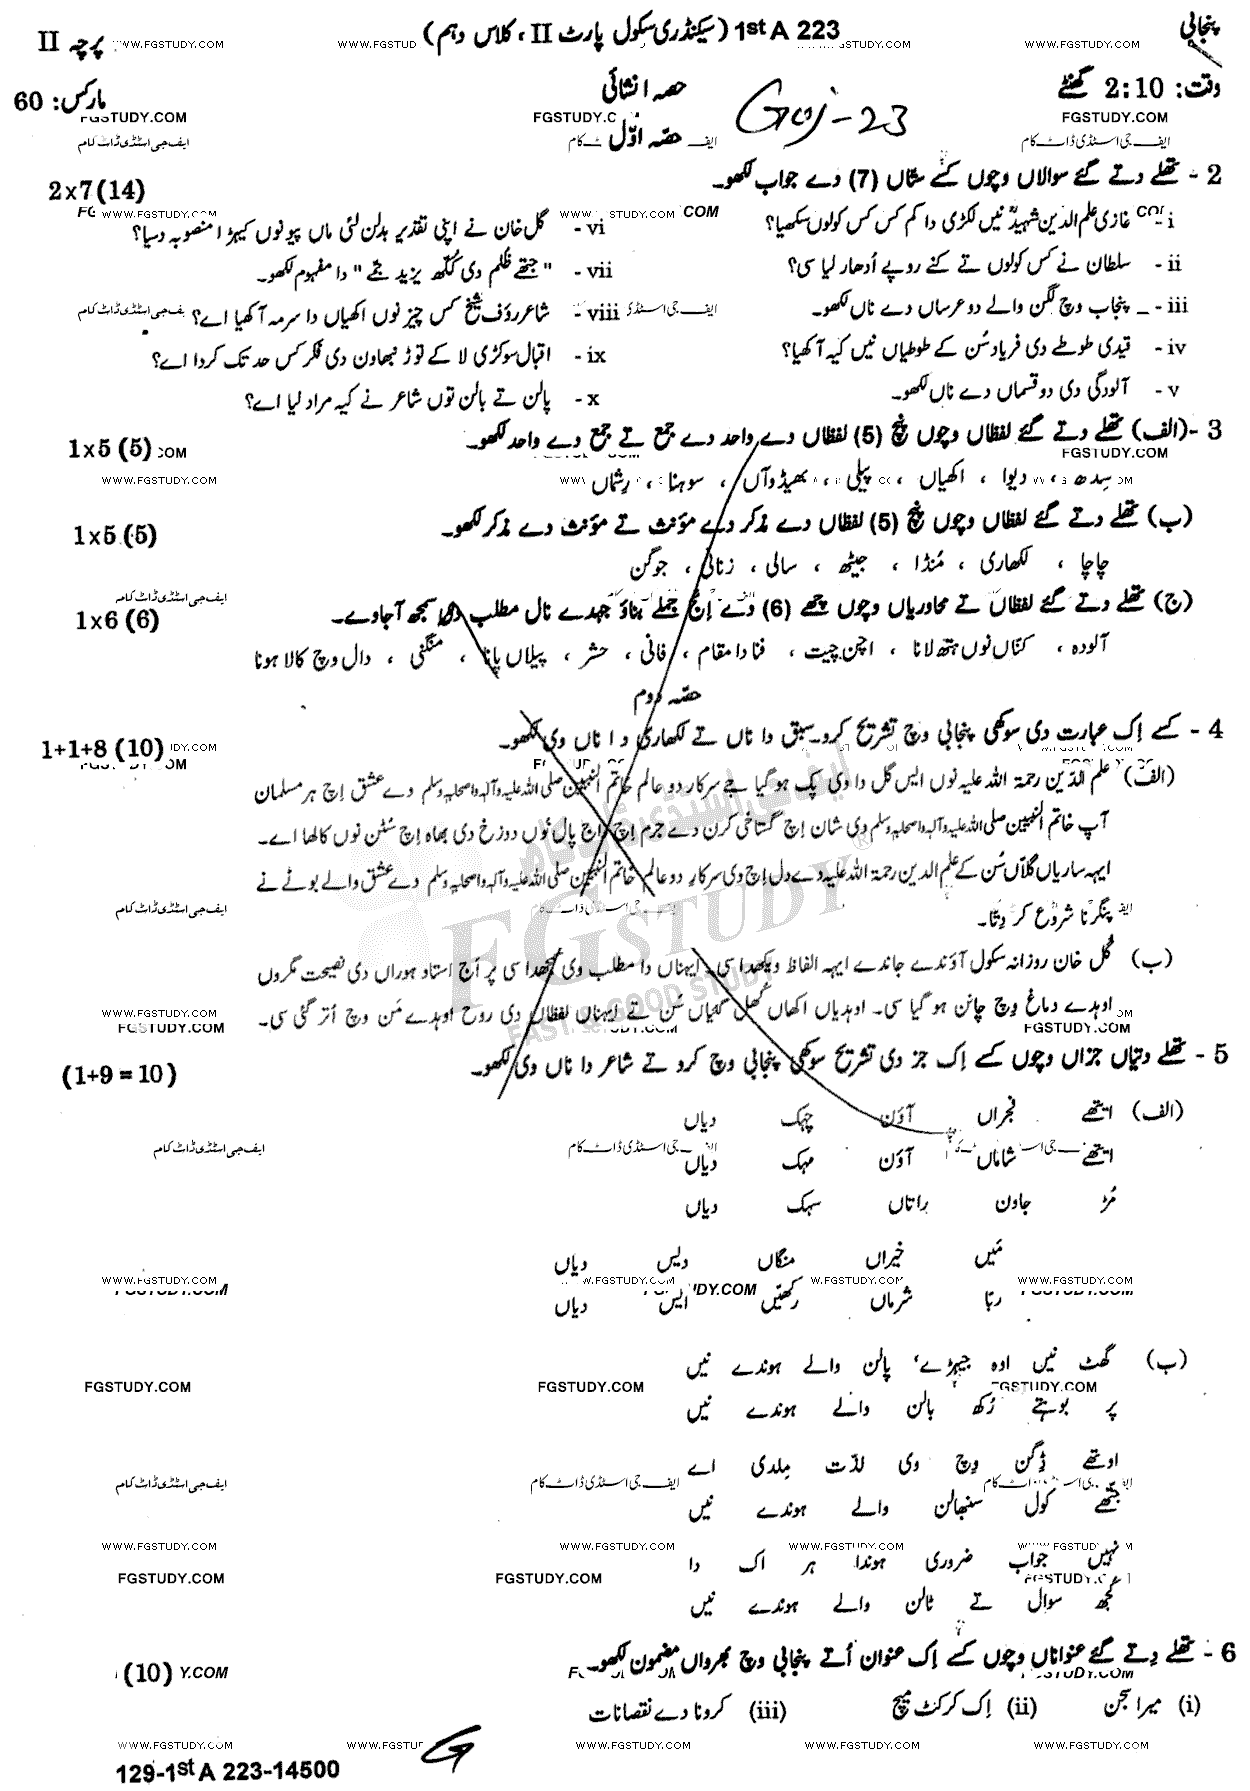 پنجابی
1st A 223 (سیکنڈری سکول پارٹ II، کلاس دہم)
پرچہ II
WWW.FGSTUDY.COM
وقت: 2:10 گھنٹے
حصہ انشائی
مارکس: 60
Guj-23
FGSTUDY.COM
حصّہ اوّل
ایف جی اسٹڈی ڈاٹ کام
2 - تھلے دتے گئے سوالاں وچوں کسے ستاں (7) دے جواب لکھو۔ 2x7(14)
i - غازی علم الدین شہیدؒ نیں لکڑی دا کم کس کس کولوں سکھیا؟
vi - گل خان نے اپنی تقدیر بدلن لئی ماں پیو نوں کیہڑا منصوبہ دسیا؟
ii - سلطان نے کس کولوں تے کنے روپے اُدھار لیا سی؟
vii - "جتھے ظلم دی کُکھ یزید جمّے" دا مفہوم لکھو۔
iii - پنجاب وچ لگن والے دو عرساں دے ناں لکھو۔
viii - شاعر رؤف شیخ کس چیز نوں اکھیاں دا سرمہ آکھیا اے؟
iv - قیدی طوطے دی فریاد سُن کے طوطیاں نیں کیہ آکھیا؟
ix - اقبال سوکڑی لا کے توڑ نبھاون دی فکر کس حد تک کردا اے؟
v - آلودگی دی دو قسماں دے ناں لکھو۔
x - پالن تے بالن توں شاعر نے کیہ مراد لیا اے؟
3 -(الف) تھلے دتے گئے لفظاں وچوں پنج (5) لفظاں دے واحد دے جمع تے جمع دے واحد لکھو۔ 1x5 (5)
سِدھ ، دیوا ، اکھیاں ، پیلی ، بھیڈو آں ، سوہنا ، رشماں
(ب) تھلے دتے گئے لفظاں وچوں پنج (5) لفظاں دے مذکر دے مؤنث تے مؤنث دے مذکر لکھو۔ 1x5 (5)
چاچا ، لکھاری ، مُنڈا ، جیٹھ ، سالی ، زنانی ، جوگن
(ج) تھلے دتے گئے لفظاں تے محاوریاں وچوں چھے (6) دے اِنج جملے بناؤ جہدے نال مطلب دی سمجھ آ جاوے۔ 1x6 (6)
آلودہ ، کنّاں نوں ہتھ لانا ، اچن چیت ، فنا دا مقام ، فانی ، حشر ، پیلاں پانا ، منگنی ، دال وچ کالا ہونا
حصّہ دوم
4 - کسے اِک عبارت دی سوکھی پنجابی وچ تشریح کرو۔ سبق دا ناں تے لکھاری دا ناں وی لکھو۔ 1+1+8 (10)
(الف) علم الدّین رحمۃ اللہ علیہ نوں ایس گل دا وی پک ہو گیا جے سرکار دو عالم خاتم النبیین صلی اللہ علیہ وآلہ واصحابہ وسلم دے عشق اِچ ہر مسلمان
آپ خاتم النبیین صلی اللہ علیہ وآلہ واصحابہ وسلم دی شان اِچ گستاخی کرن دے جرم اِچ راج پال نوں دوزخ دی بھاہ اِچ سُٹن نوں کاہلا اے۔
ایہہ ساریاں گلّاں سُن کے علم الدین رحمۃ اللہ علیہ دے دل اِچ وی سرکار دو عالم خاتم النبیین صلی اللہ علیہ وآلہ واصحابہ وسلم دے عشق والے بوٹے نے
پنگرنا شروع کر دِتّا۔
(ب) گُل خان روزانہ سکول آؤندے جاندے ایہہ الفاظ ویکھدا سی۔ ایہناں دا مطلب وی سمجھدا سی پر اَج استاد ہوراں دی نصیحت مگروں
اوہدے دماغ وچ چانن ہو گیا سی۔ اوہدیاں اکھاں کھل گئیاں سَن تے ایہناں لفظاں دی روح اوہدے مَن وچ اُتر گئی سی۔
FGSTUDY
FAST. GOOD STUDY
5 - تھلے دتیاں جزاں وچوں کسے اِک جز دی تشریح سوکھی پنجابی وچ کرو تے شاعر دا ناں وی لکھو۔ (1+9 = 10)
(الف) ایتھے فجراں آؤن چہک دیاں
ایتھے شاماں آؤن مہک دیاں
مُڑ جاون راتاں سہک دیاں
مَیں خیراں منگاں دیس دیاں
ربّا شرماں رکھّیں ایس دیاں
(ب) گھٹ نیں اوہ جیہڑے، پالن والے ہوندے نیں
پر بوہتے رُکھ بالن والے ہوندے نیں
اوتھے ڈِگن وچ وی لذّت مِلدی اے
جتھّے کول سنبھالن والے ہوندے نیں
نہیں جواب ضروری ہوندا ہر اک دا
کُجھ سوال تے ٹالن والے ہوندے نیں
6 - تھلے دِتے گئے عنواناں وچوں کسے اِک عنوان اُتے پنجابی وچ بھرواں مضمون لکھو۔ (10)
(i) میرا سجن (ii) اِک کرکٹ میچ (iii) کرونا دے نقصانات
129-1st A 223-14500